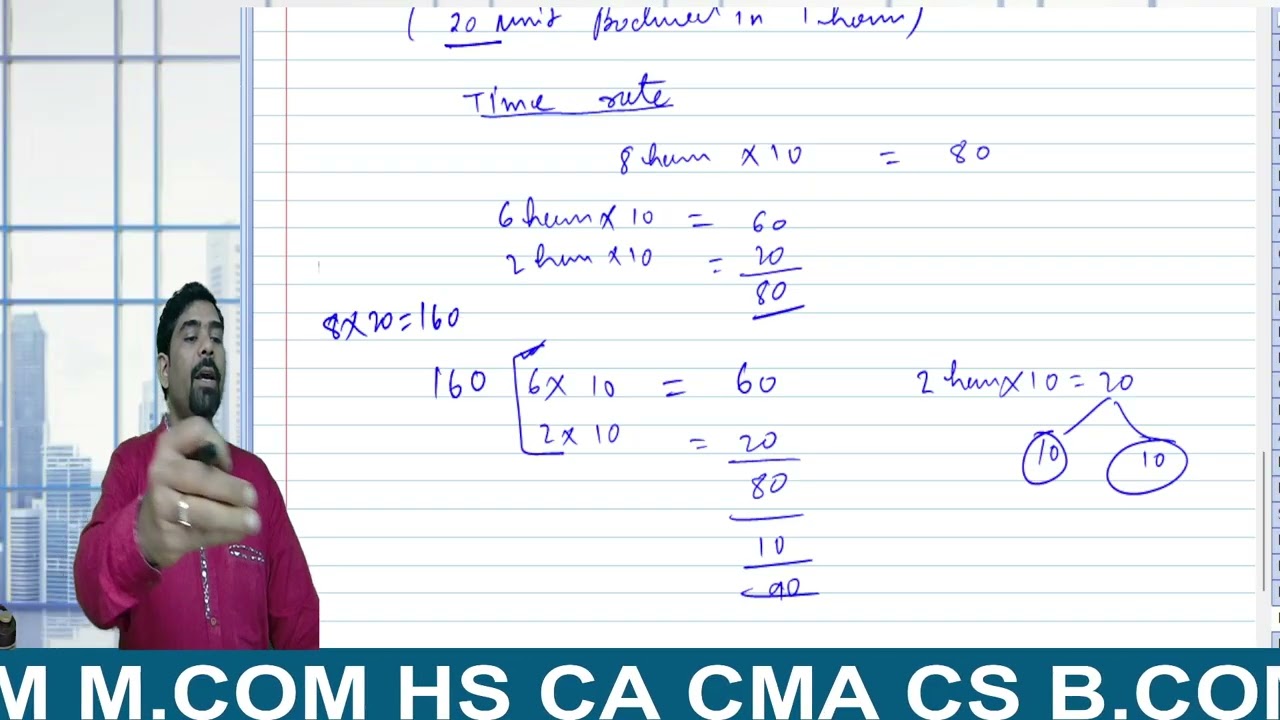 ( 20 unit Produced in 1 hour)
Time rate
8 hour × 10 = 80
6 hour × 10 = 60
2 hour × 10 = 20
80
8×20=160
160 6× 10 = 60
2× 10 = 20
80
10
90
2 hour × 10 = 20
10 10
M M.COM HS CA CMA CS B.CO